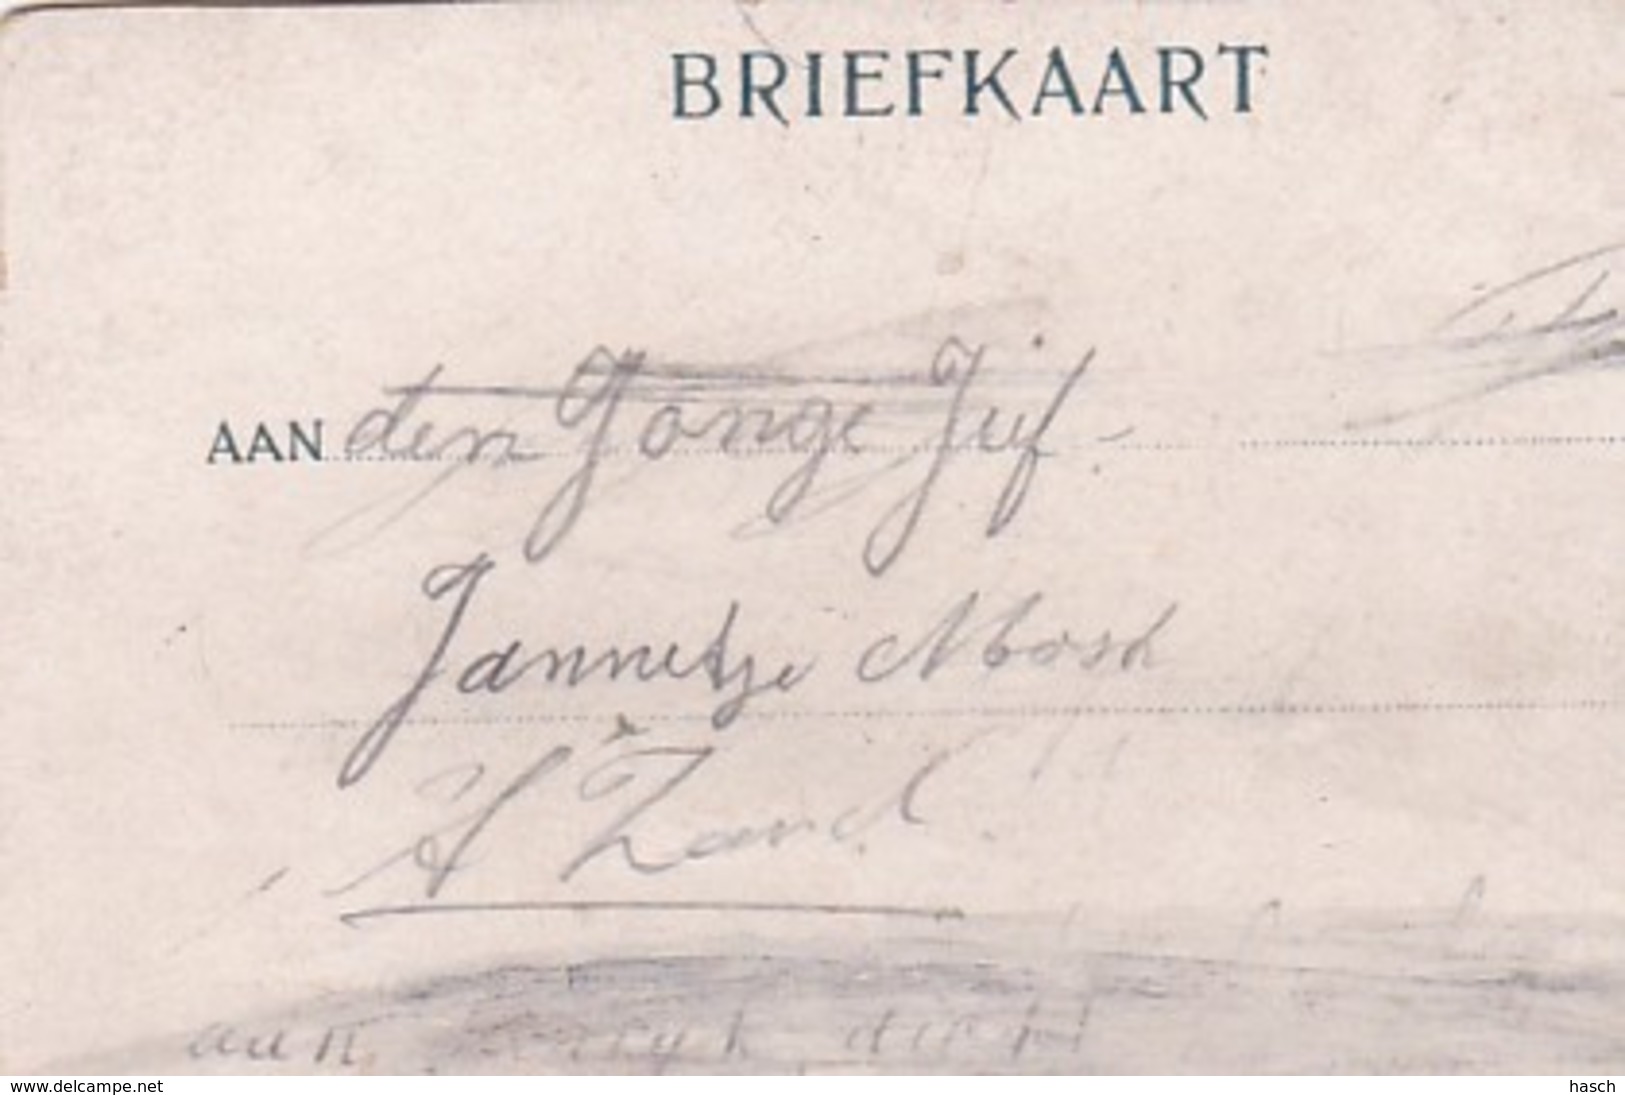 BRIEFKAART
AAN den Jonge Juf.
Jannetje Mosk
't Zand.
aan
www.delcampe.net
hasch